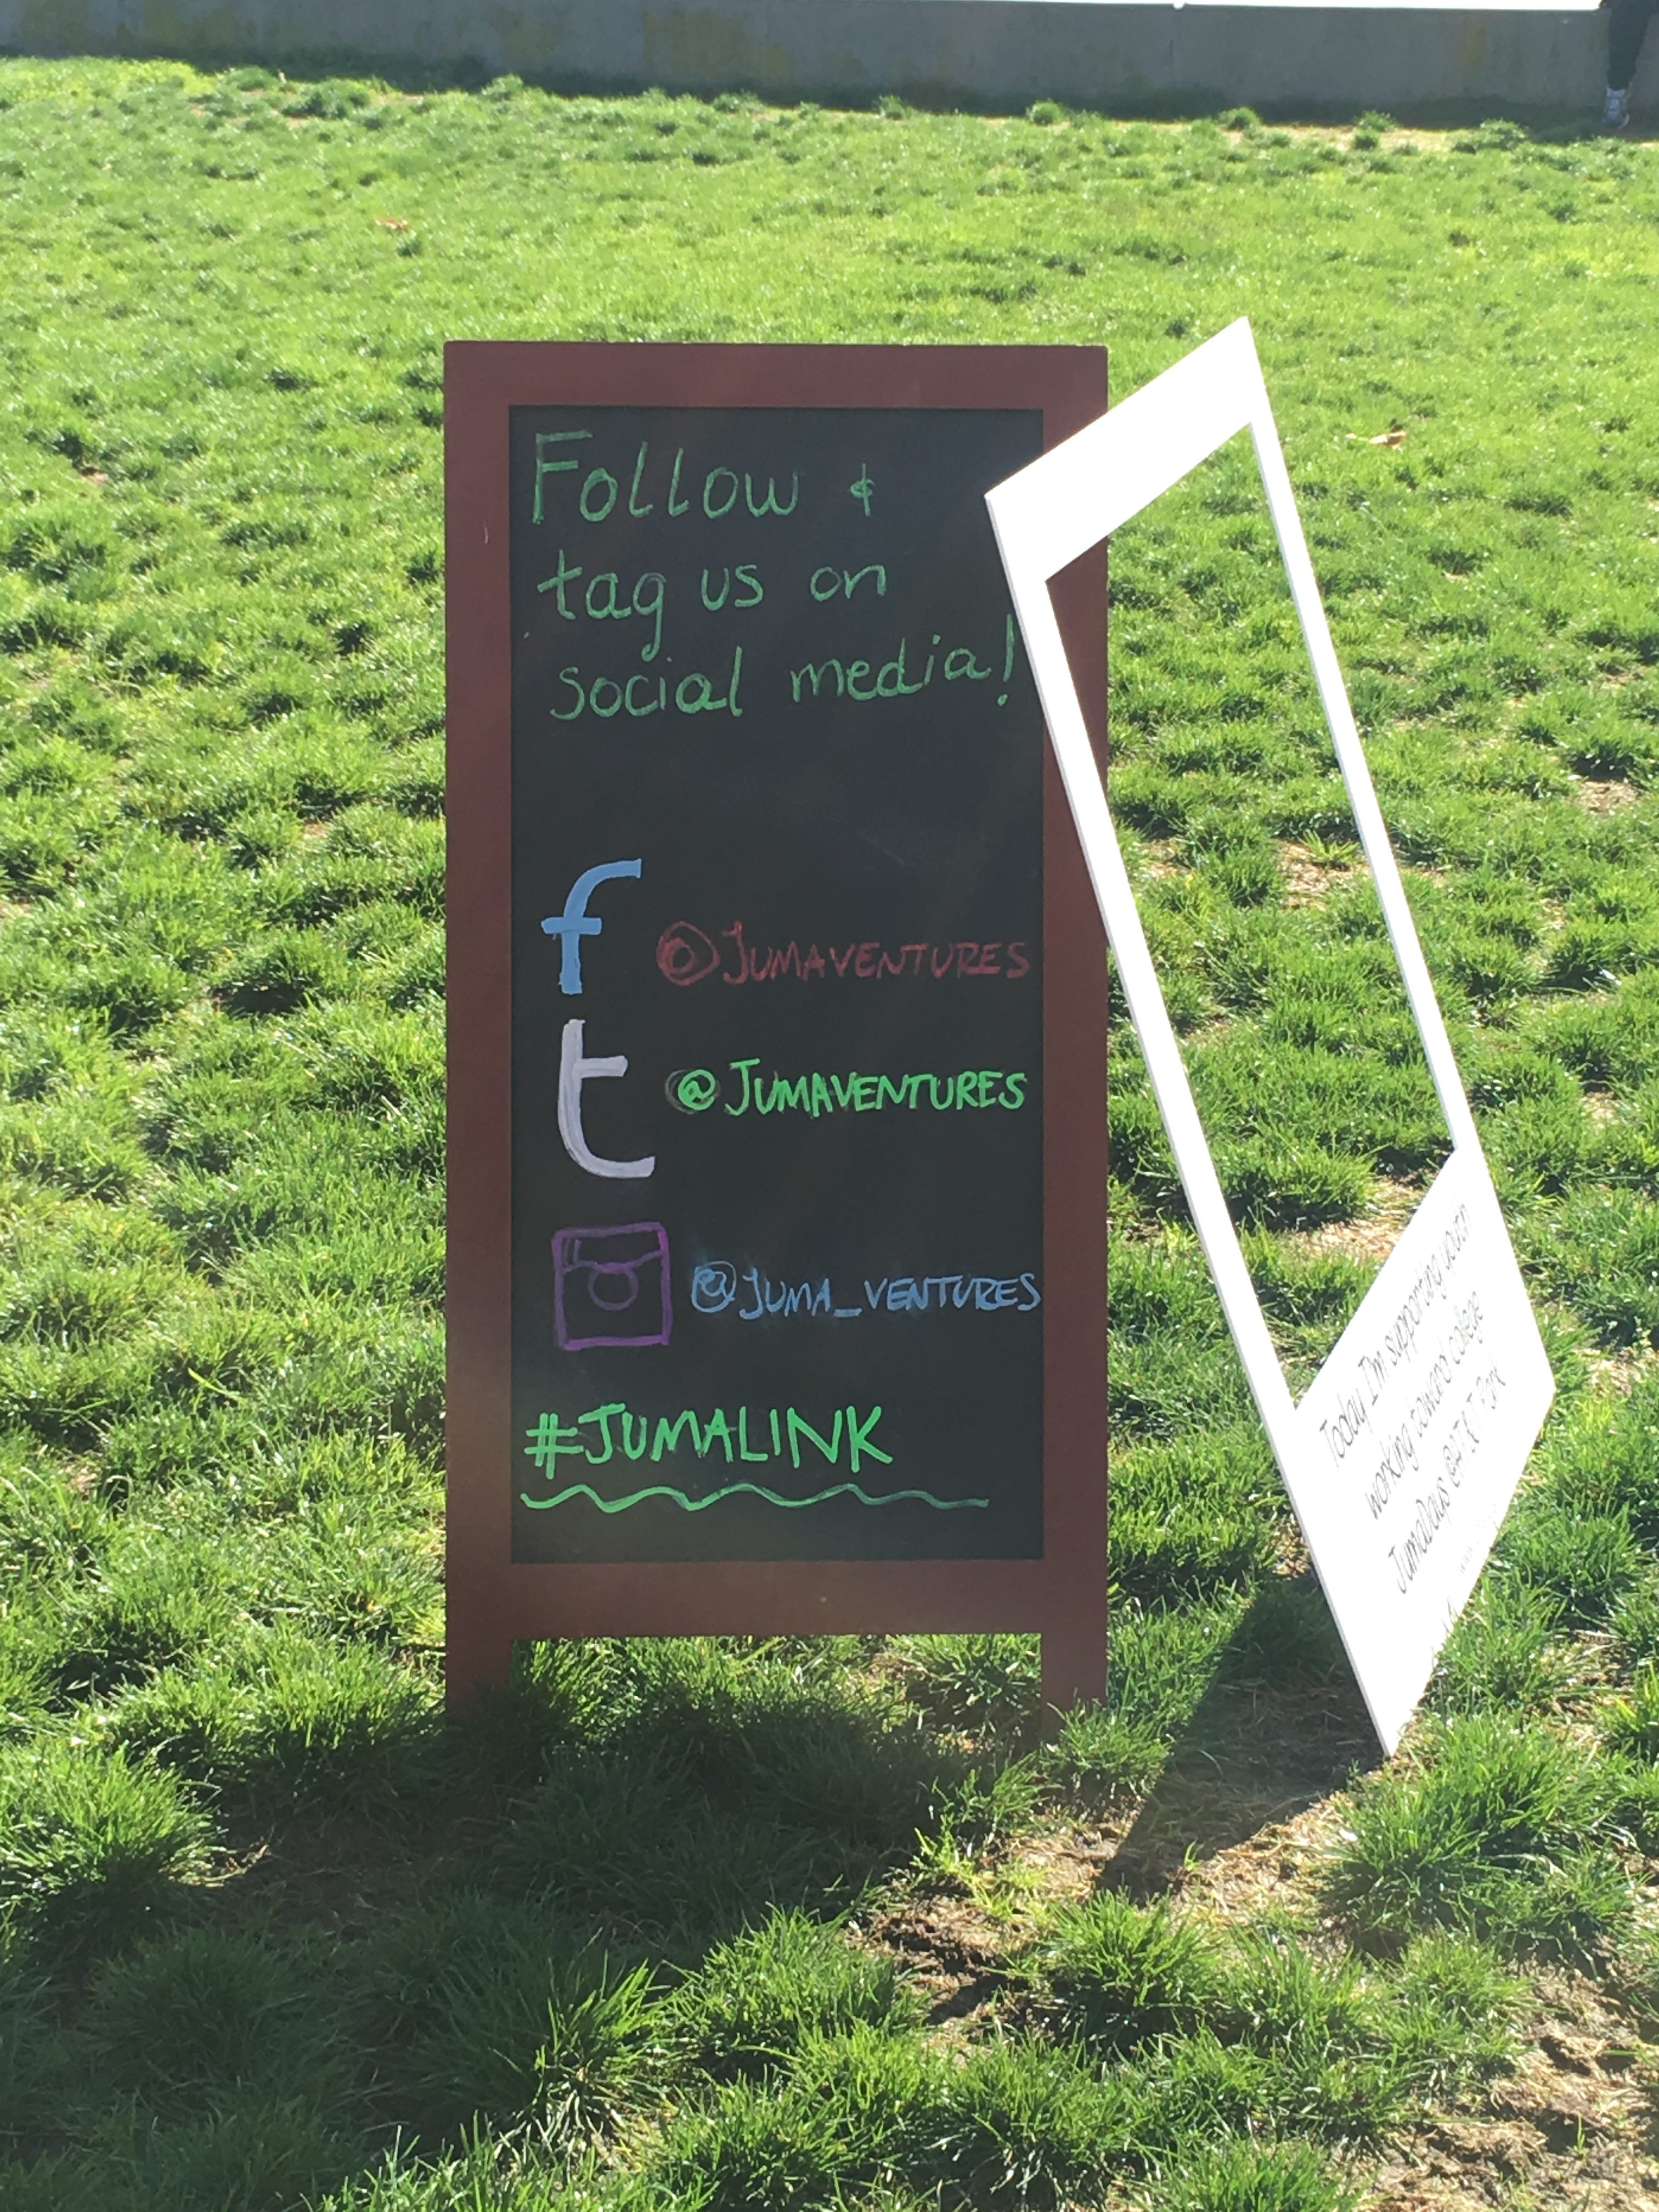 Follow &
tag us on
social media!
f @JUMAVENTURES
t @JUMAVENTURES
@JUMA_VENTURES
#JUMALINK
Today I'm supporting youth
working toward college
JumaDays @AT&T Park